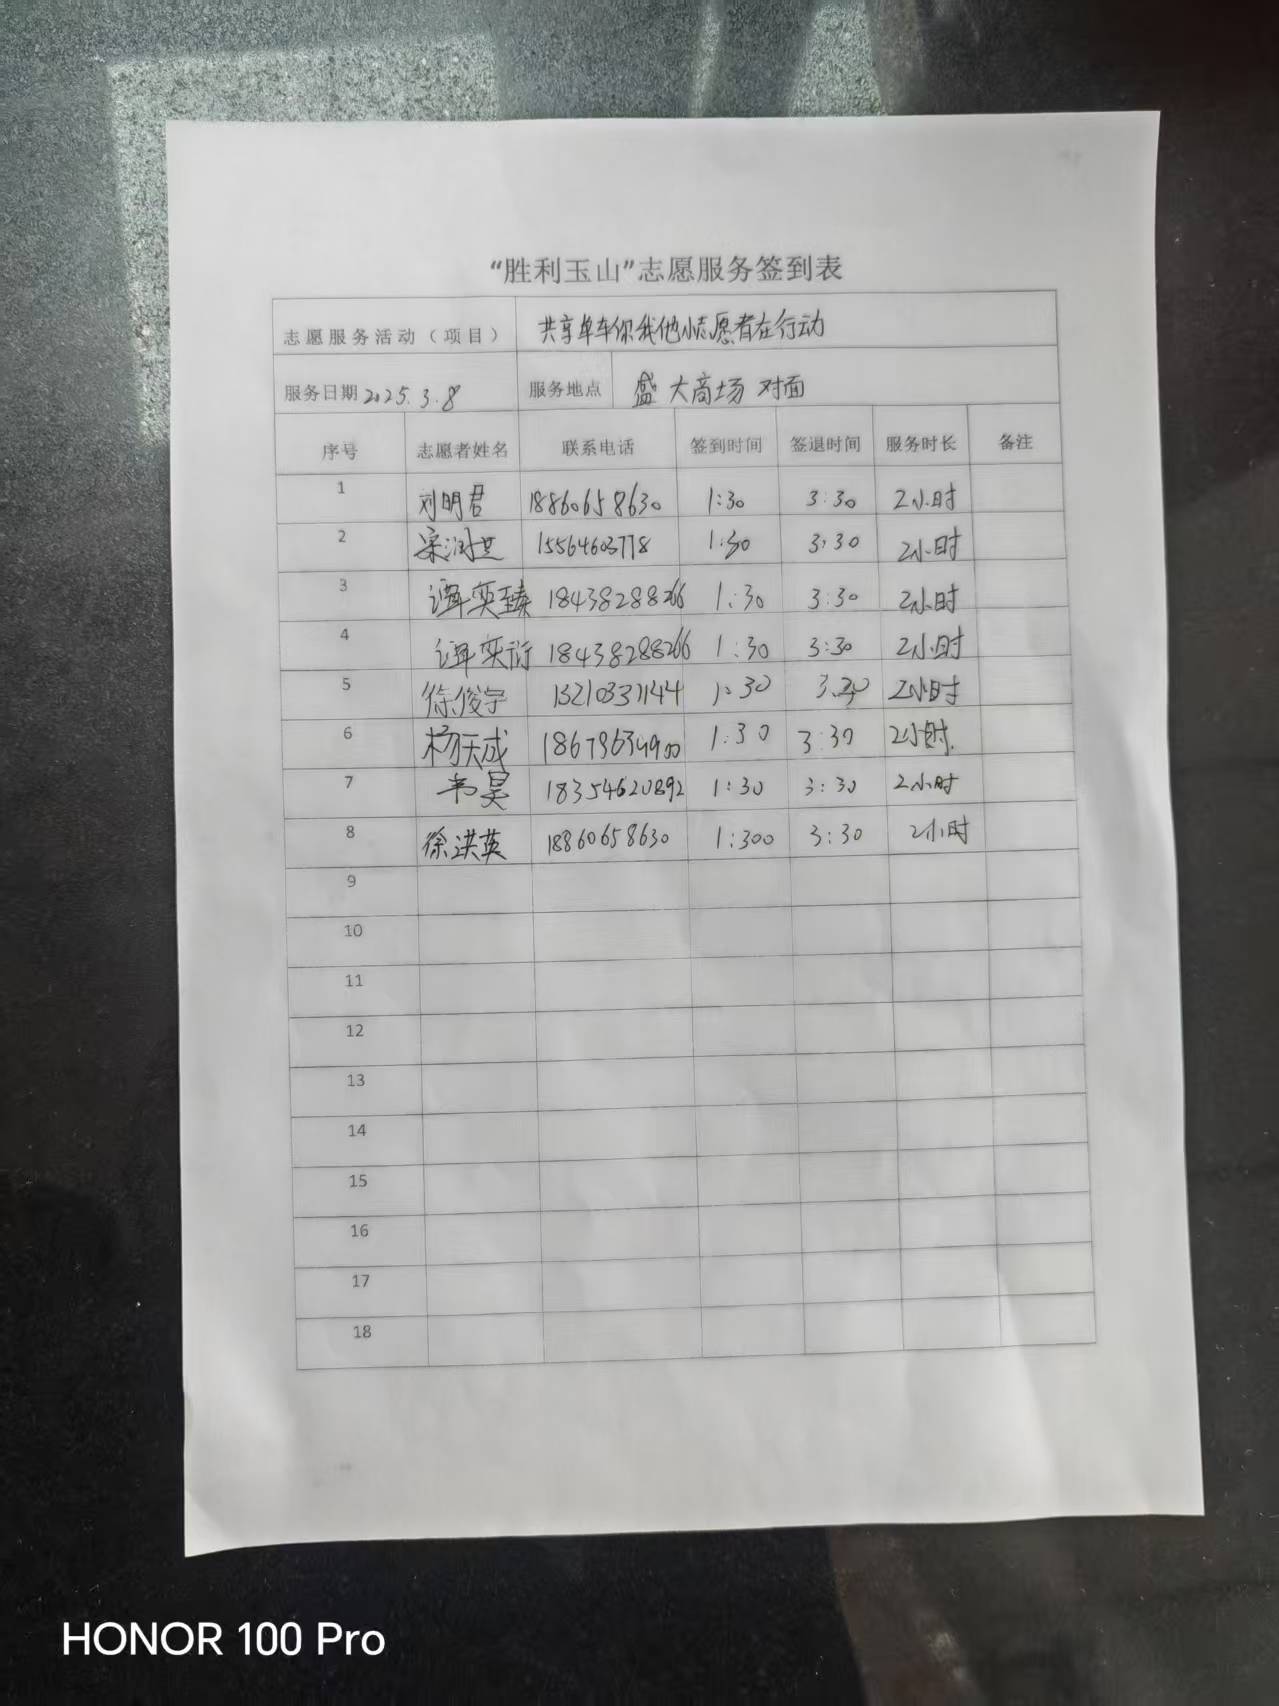 “胜利玉山”志愿服务签到表
志愿服务活动（项目） 共享单车你我他小志愿者在行动
服务日期 2025.3.8 服务地点 盛大商场对面
序号 志愿者姓名 联系电话 签到时间 签退时间 服务时长 备注
1 刘明君 18860658630 1:30 3:30 2小时
2 15564603778 1:30 3:30 2小时
3 谭奕臻 18438288266 1:30 3:30 2小时
4 谭奕衍 18438288266 1:30 3:30 2小时
5 徐俊宇 13210331144 1:30 2小时
6 杨天成 1:30 3:30 2小时.
7 韦昊 18354620892 1:30 3:30 2小时
8 徐洪英 18860658630 1:300 3:30 2小时
9
10
11
12
13
14
15
16
17
18
HONOR 100 Pro